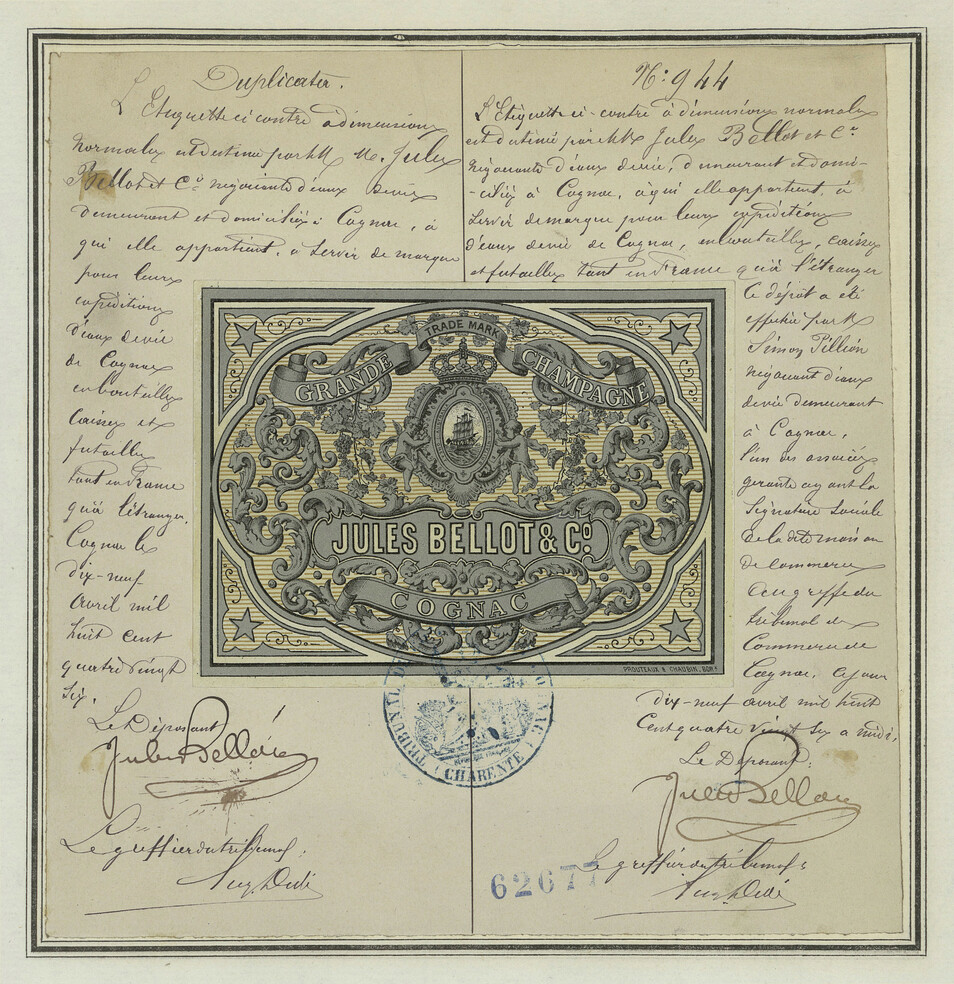 Duplicata.
L'Etiquette ci contre a dimensions
normales est destinée par MM. Jules
Bellot et Cie négociants d'eaux devie
demeurant et domiciliés à Cognac, à
qui elle appartient, à servir de marque
pour leurs
expéditions
d'eaux devie
de Cognac
en bouteilles
caisses et
futailles
tant en France
qu'à l'étranger.
Cognac le
dix-neuf
avril mil
huit cent
quatre vingt
six.
Le Déposant
Le greffier du tribunal:
N°: 944
L'Etiquette ci-contre à dimensions normales
est destinée par MM Jules Bellot et Cie
négociants d'eaux devie, demeurant et domi-
-ciliés à Cognac, à qui elle appartient, à
servir de marque pour leurs expéditions
d'eaux devie de Cognac, en bouteilles, caisses
et futailles tant en France qu'à l'étranger
Ce dépôt a été
effectué par M
Simon Pillion
négociant d'eaux
devie demeurant
à Cognac,
l'un des associés
gérants ayant la
signature sociale
de la dite maison
de commerce
au greffe du
tribunal de
Commerce de
Cognac, ce jour
dix-neuf avril mil huit
cent quatre vingt six a midi,
Le Déposant:
Le greffier du tribunal:
TRADE MARK
GRANDE CHAMPAGNE
JULES BELLOT & Co
COGNAC
PROUTEAUX & CHAUBIN, BORx
TRIBUNAL DE
CHARENTE
62677